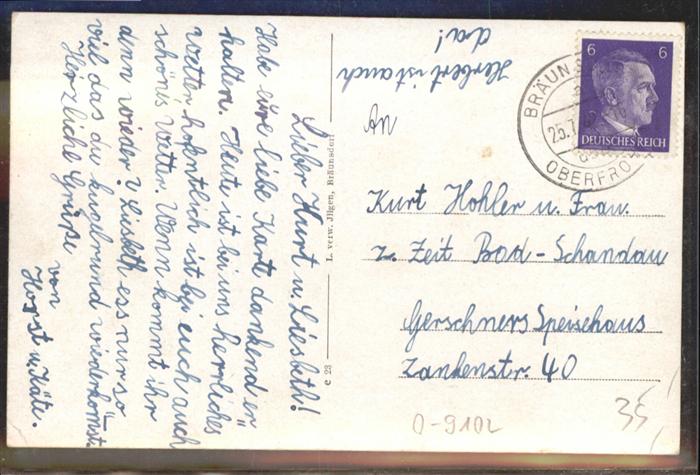 Lieber Kurt u. Liesbeth!
Habe eure liebe Karte dankend er=
halten. Heute ist bei uns herrliches
Wetter hofentlich ist bei euch auch
schönes Wetter. Wenn kommt ihr
den wieder? Lisbeth ess nur so
viel das du kuchelrund wiederkomst.
Herzliche Grüße
von
Horst u. Käte.
Herbert ist auch
da!
L. verw. Jilgen, Bräunsdorf
c 23
6 6
DEUTSCHES REICH
BRÄUNS
25.7.
OBERFRO
An
Kurt Hohler u. Frau.
z. Zeit Bad-Schandau
Gerschners Speisehaus
Zankenstr. 40
O-9102
35